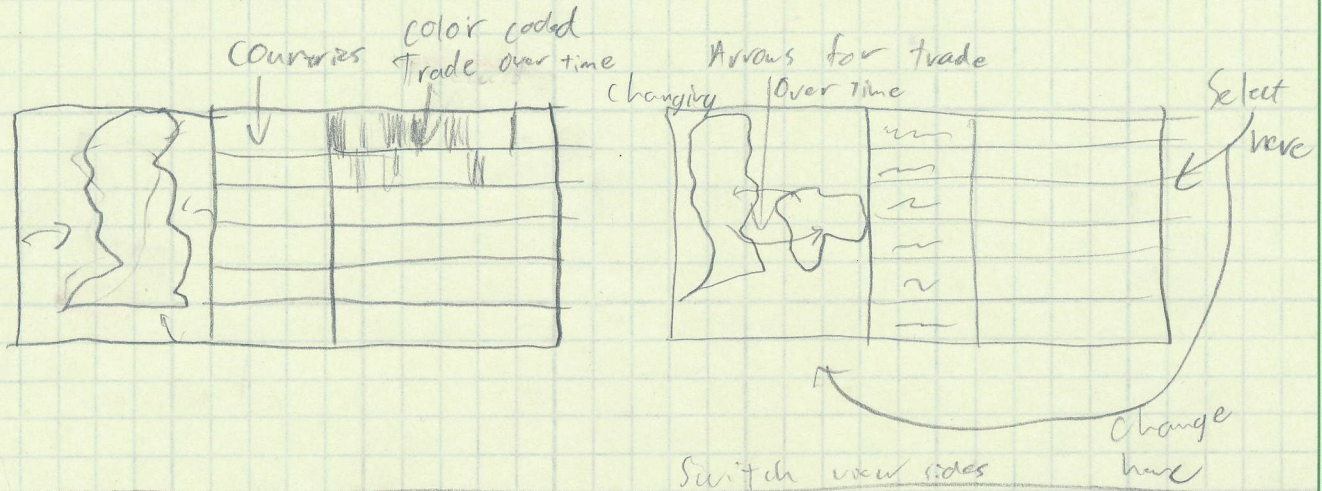 Countries
color coded
Trade over time
Arrows for trade
Changing over time
Select
here
Change
here
Switch view sides